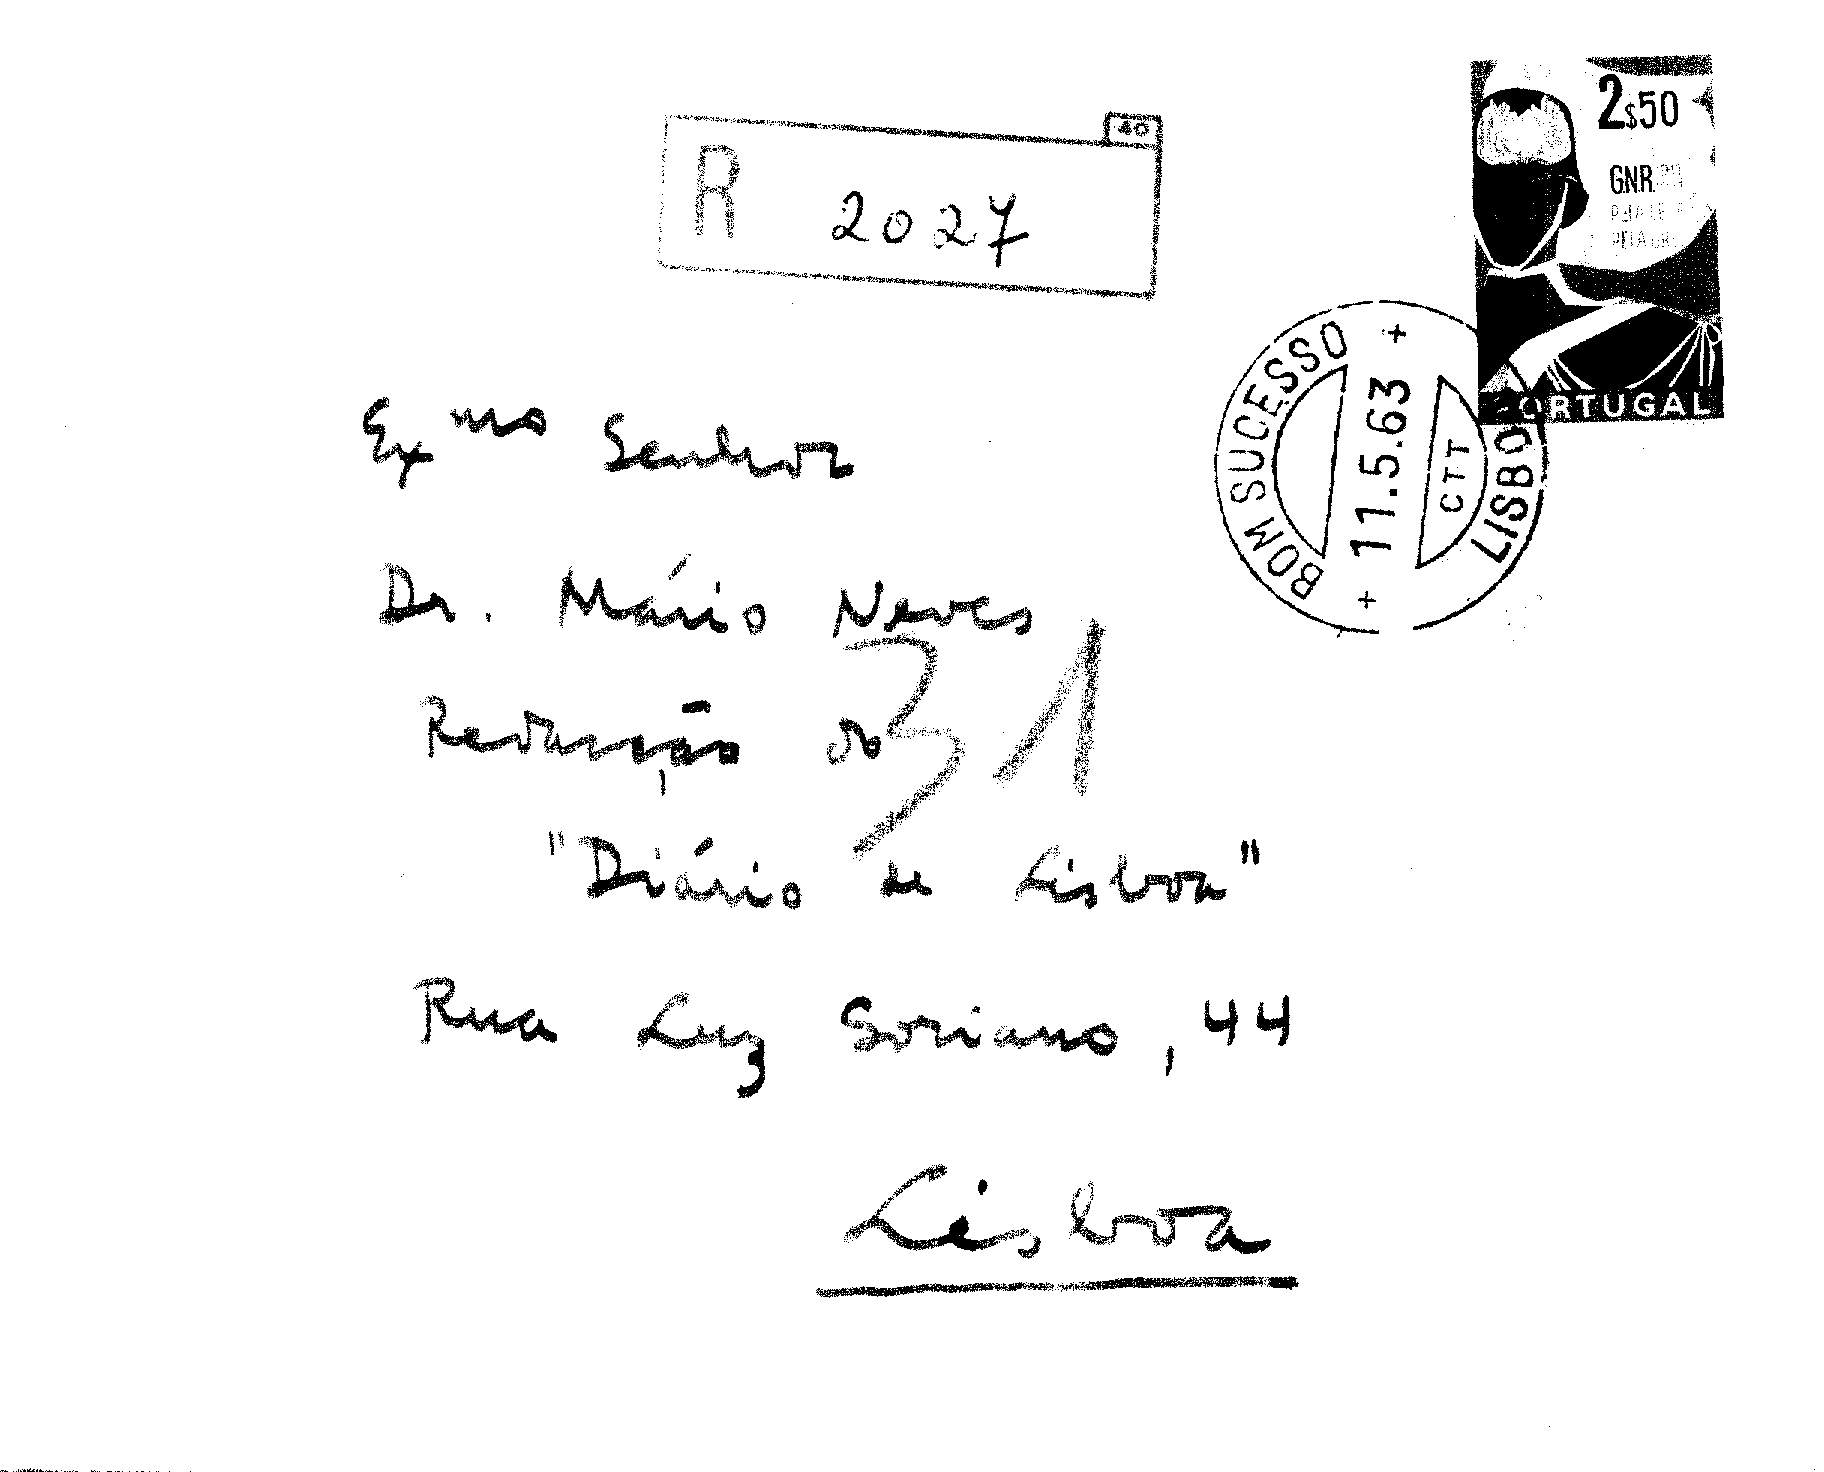 40
R 2027
2$50
G.N.R.
PORTUGAL
BOM SUCESSO
+ 11.5.63 +
CTT
LISBOA
Exmo Senhor
Dr. Mário Neves
Redacção do
31
"Diário de Lisboa"
Rua Luz Soriano, 44
Lisboa